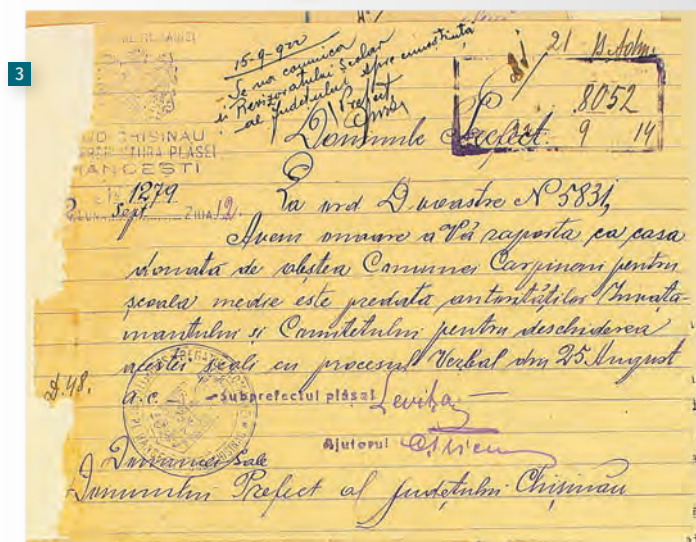 3
15-9-922
Se va comunica
și Revizoratului Școlar
al județului, spre cunoștință
Prefect
21 D. Adm.
8052
9 14
CHISINAU
PLĂSEI
HANCESTI
1279
Sept. ZIUA 12.
Domnule Prefect.
La ord D voastre N 5831,
Avem onoare a Vă raporta ca casa
donată de obștea Comunei Carpineni pentru
școala medie este predata autorităților Invata-
mantului și Comitetului pentru deschiderea
acestei școli cu procesul Verbal din 25 August
a.c.
D.48.
Subprefectul plășei
Ajutorul
Domniei Sale
Domnului Prefect al județului Chișinău